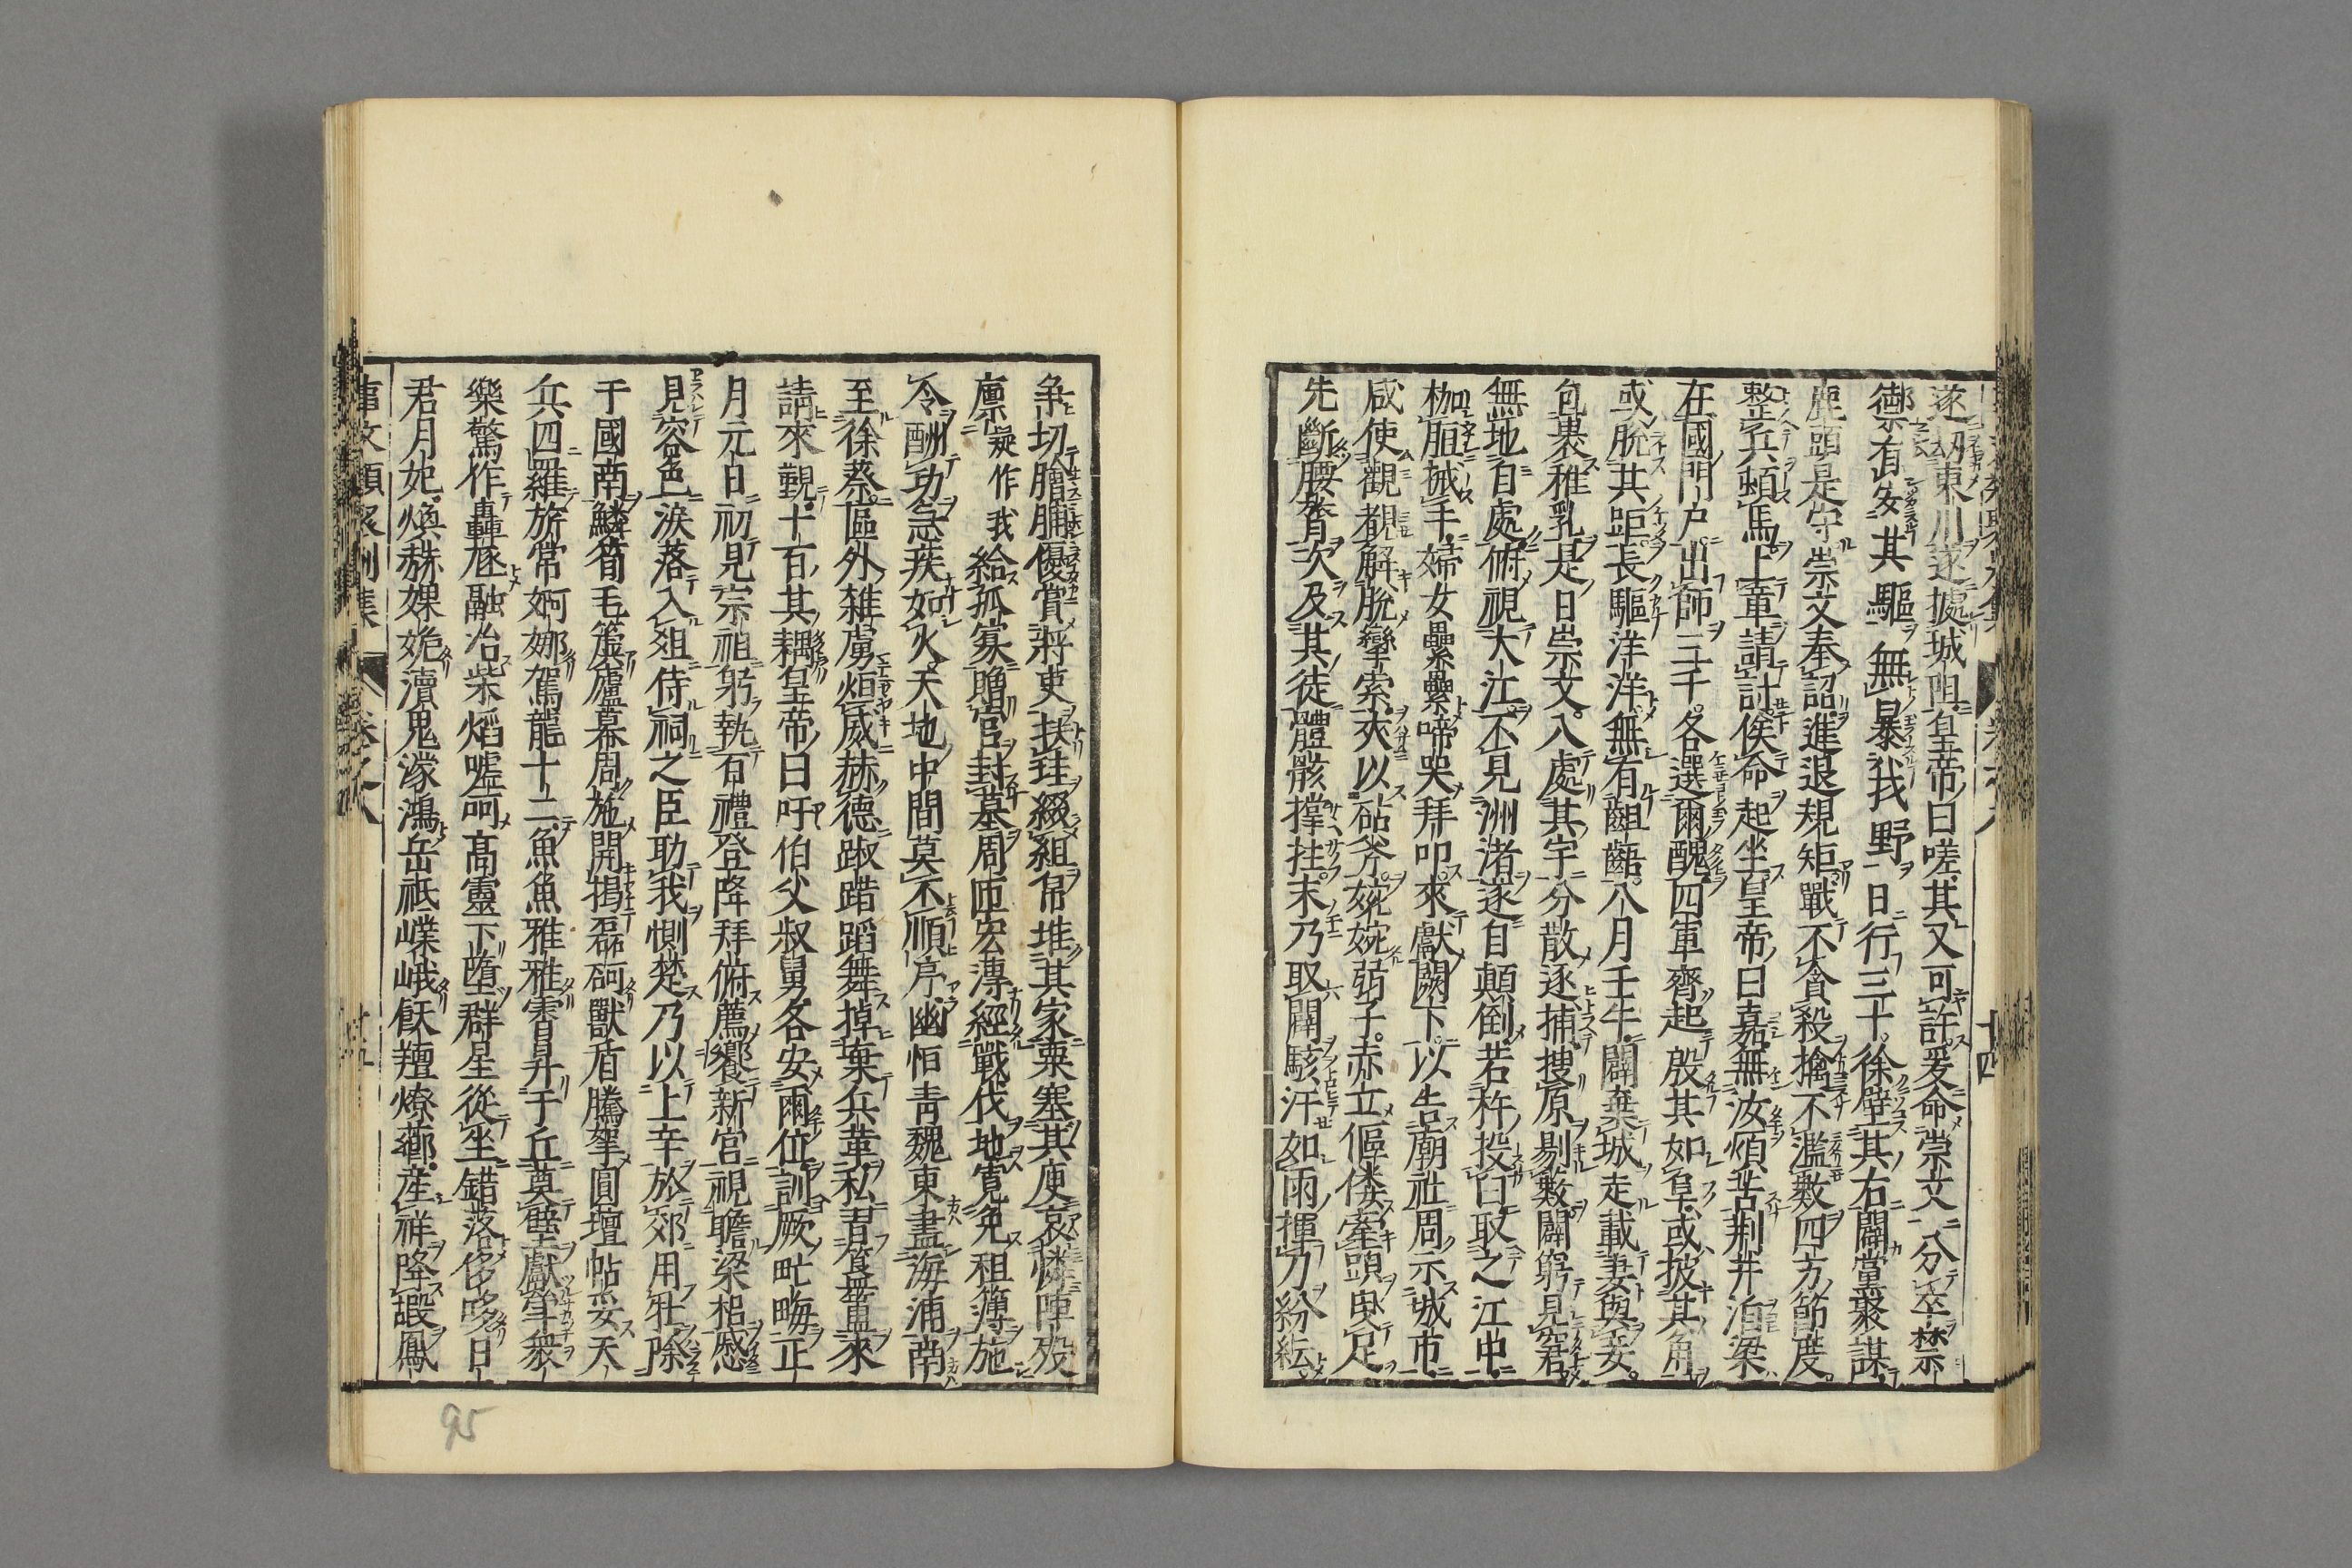 遂劫東川遂據城阻皇帝曰嗟其又可許爰命崇文分卒禁
禦有安其驅無暴我野日行三十徐壁其右闢黨聚謀
鹿頭是守崇文奉詔進退規矩戰不貪殺擒不濫數四方節度
整兵頓馬上章請討俟命起坐皇帝曰嘉無汝煩苦荆并洎梁
在國門戶出師三千各選爾醜四軍齊起殷其如阜或拔其角
或脫其距長驅洋洋無有齟齬八月壬午闢棄城走載妻與妾
包裹稚乳是日崇文入處其宇分散逐捕搜原剔藪闢窮見窘
無地自處俯視大江不見洲渚遂自顛倒若杵投臼取之江中
枷脰械手婦女纍纍啼哭拜叩來獻闕下以告廟社周示城市
咸使觀覩解脫攣索夾以砧斧婉婉弱子赤立傴僂牽頭曳足
先斷腰膂次及其徒體骸撐拄末乃取闢駭汗如雨揮刀紛紜
爭切膾脯優賞將吏扶珪綴組帛堆其家粟塞其庾哀憐陣歿
廩疑作我給孤寡贈官封墓周匝宏溥經戰伐地寬免租簿施
令酬功急疾如火天地中間莫不順序幽恒青魏東盡海浦南
至徐蔡區外雜虜烜威赫德踧踖蹈舞掉棄兵革私習簋簠來
請來覲十百其耦皇帝曰吁伯父叔舅各安爾位訓厥甿畮正
月元日初見宗祖躬執百禮登降拜俯薦饗新宮視瞻梁梠慼
見容色淚落入俎侍祠之臣助我惻楚乃以上辛於郊用牡除
于國南鱗筍毛簴廬幕周施開揭磊砢獸盾騰拏圓壇帖妥天
兵四羅旂常妸娜駕龍十二魚魚雅雅霄昇于丘奠璧獻斝衆
樂驚作轟豗融冶紫熖噓呵高靈下墮群星從坐錯落侈哆日
君月妃煥赫婐㛂瀆鬼濛鴻岳祇嶪峨飫羶燎薌産祥降嘏鳳